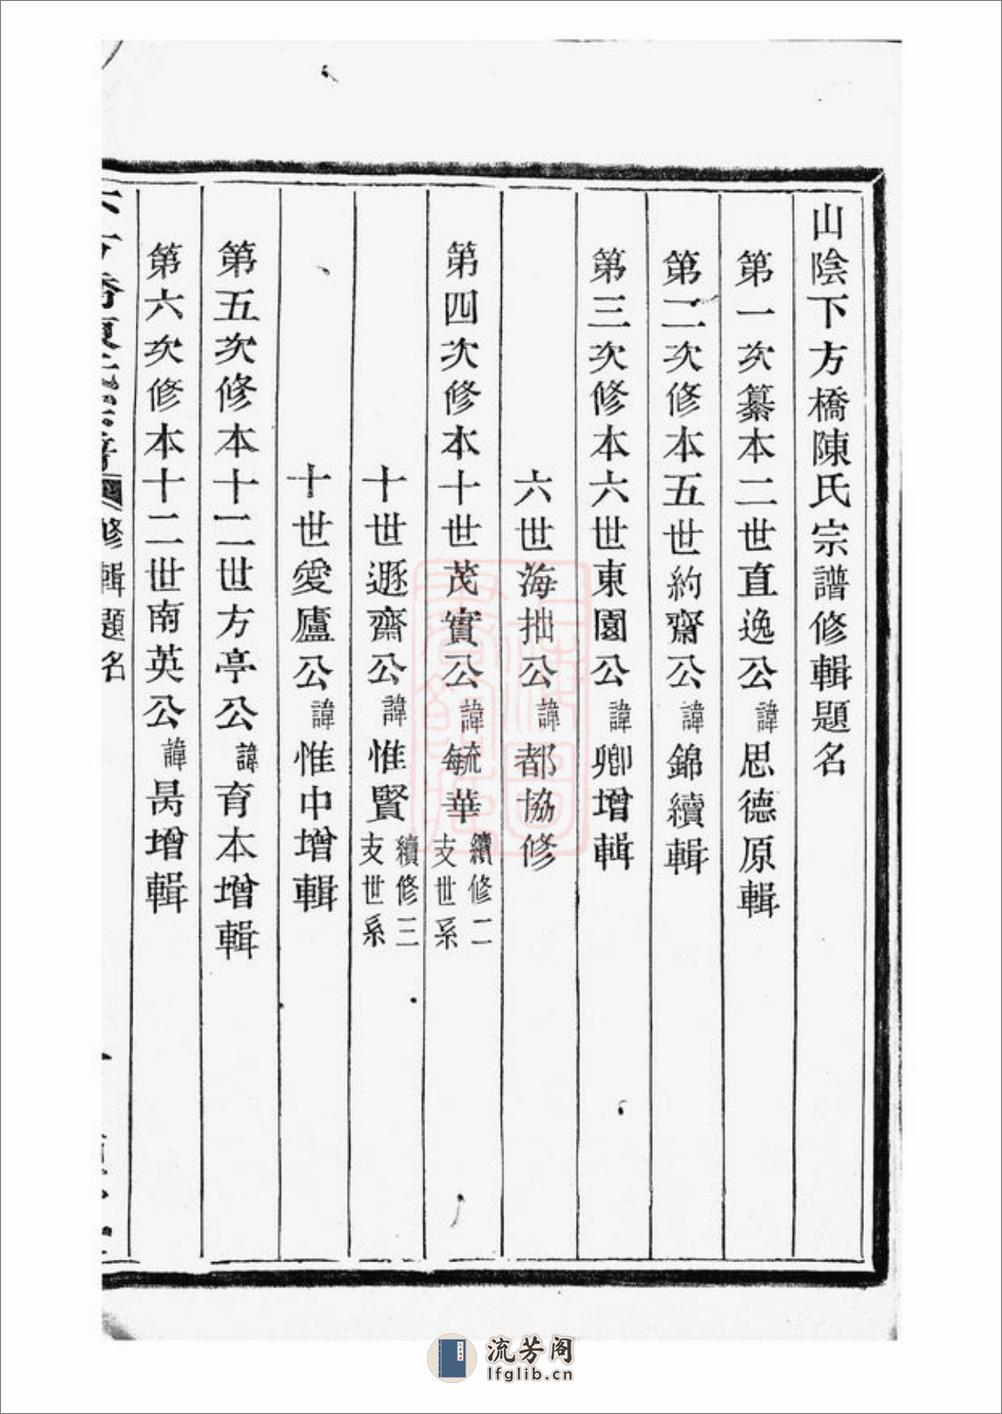 山陰下方橋陳氏宗譜修輯題名
第一次纂本二世直逸公諱思德原輯
第二次修本五世約齋公諱錦續輯
第三次修本六世東園公諱卿增輯
六世海拙公諱都協修
第四次修本十世茂實公諱毓華續修二支世系
十世遯齋公諱惟賢續修三支世系
十世愛廬公諱惟中增輯
第五次修本十二世方亭公諱育本增輯
第六次修本十二世南英公諱昺增輯
修輯題名
流芳阁
lfglib.cn